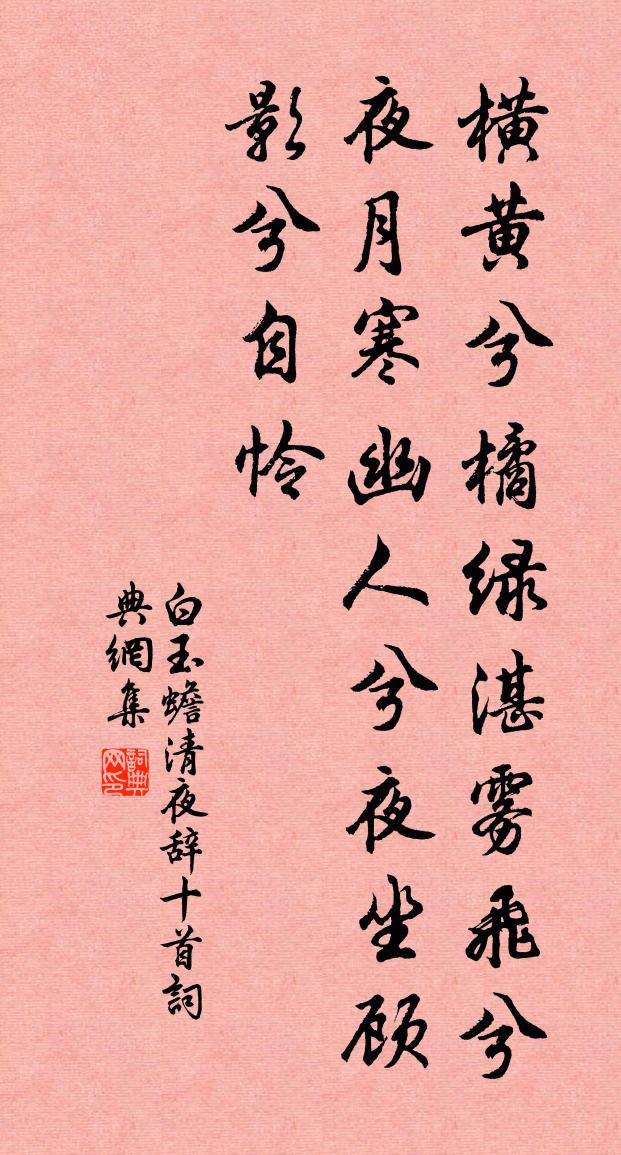 横黄兮橘绿湛雾飛兮
夜月寒幽人兮夜坐顾
影兮自怜
白玉蟾清夜辞十首詞
典網集
詞典
网印